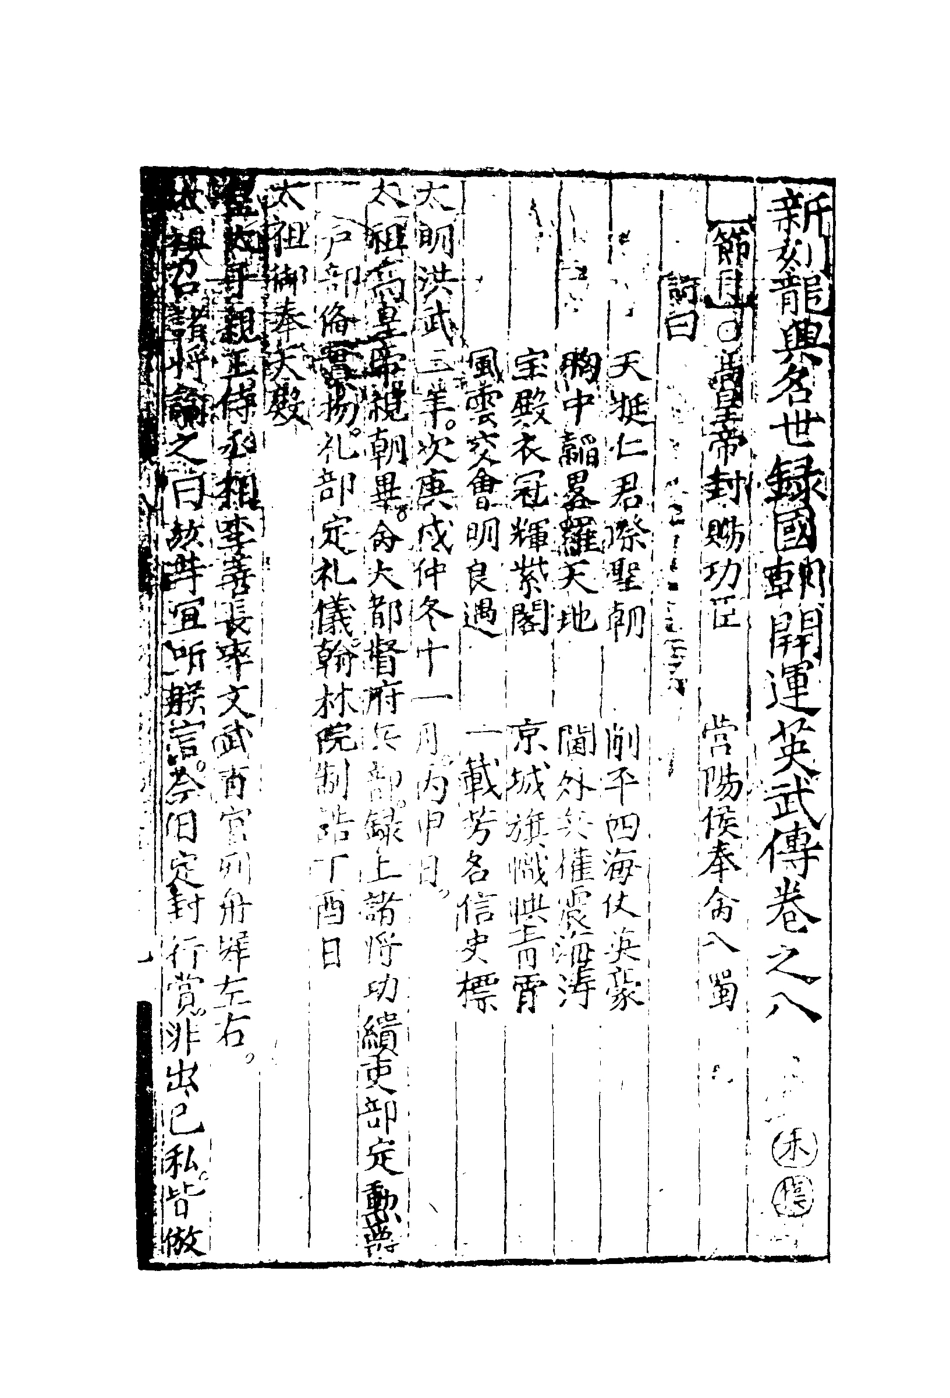 新刻龍興名世録國朝開運英武傳卷之八
節目○高皇帝封賜功臣　營陽侯奉命入蜀
詩曰
天挺仁君際聖朝　削平四海仗英豪
胸中韜畧羅天地　閫外兵權震海濤
宝殿衣冠輝紫閣　京城旗幟拱青霄
風雲交會明良遇　一載芳名信史標
大明洪武三年。次庚戍仲冬十一月。丙申日。
太祖高皇帝視朝畢。命大都督府兵部。録上諸将功績吏部定勳爵
戸部俻賞物。礼部定礼儀翰林院制誥丁酉日
太祖御奉天殿
親王侍丞相李善長率文武百官列丹墀左右。
祖召諸将諭之曰故昔宜听朕言。茶旧定封行賞。非出己私。皆倣